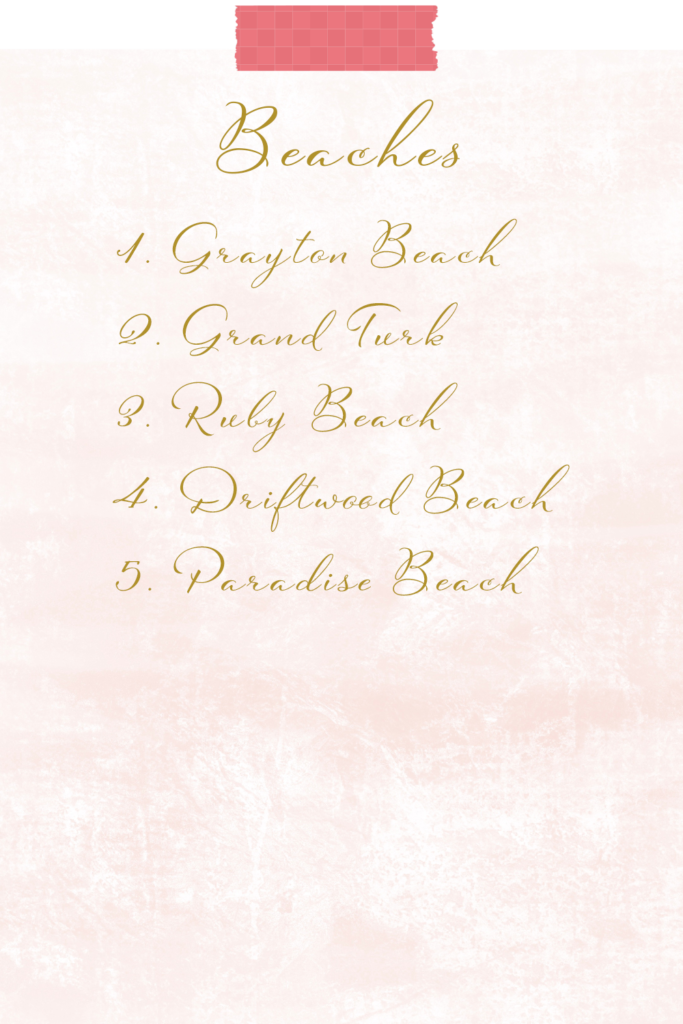 Beaches
1. Grayton Beach
2. Grand Turk
3. Ruby Beach
4. Driftwood Beach
5. Paradise Beach